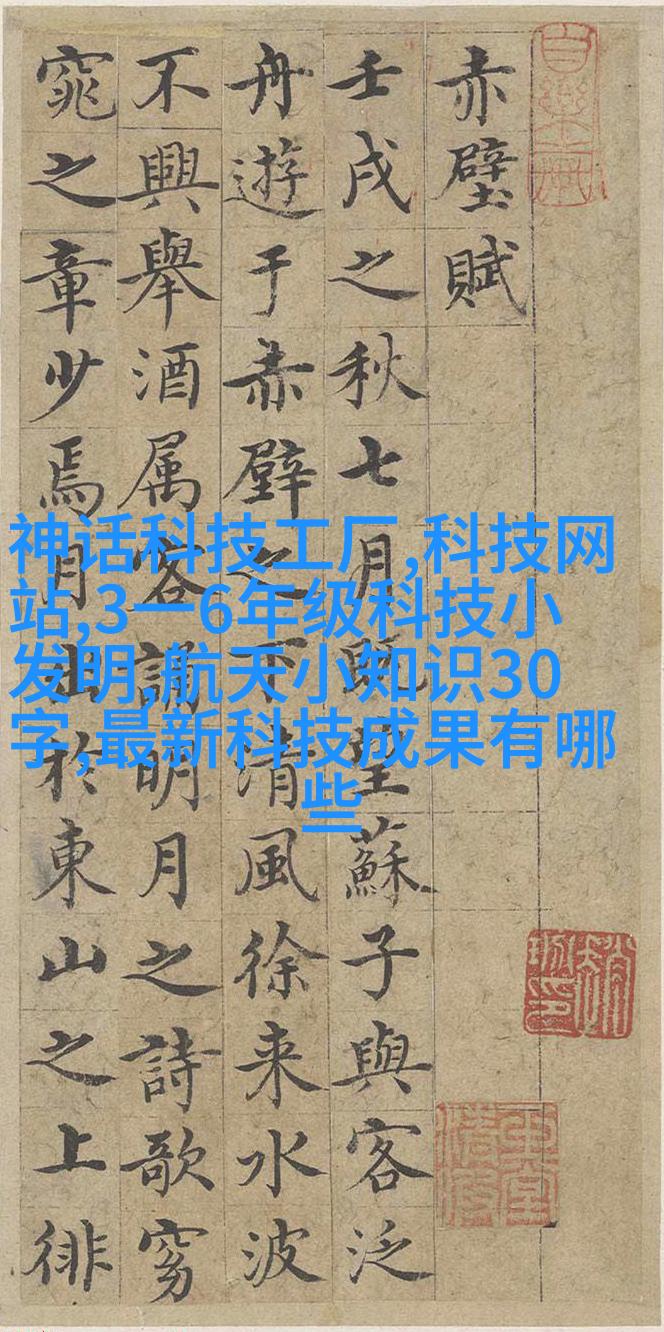 赤壁賦
壬戌之秋七月既望蘇子與客泛
舟遊于赤壁之下清風徐来水波
不興舉酒属客誦明月之詩歌窈
窕之章少焉月出於東山之上徘
神话科技工厂,科技网
站,3一6年级科技小
发明,航天小知识30
字,最新科技成果有哪
些